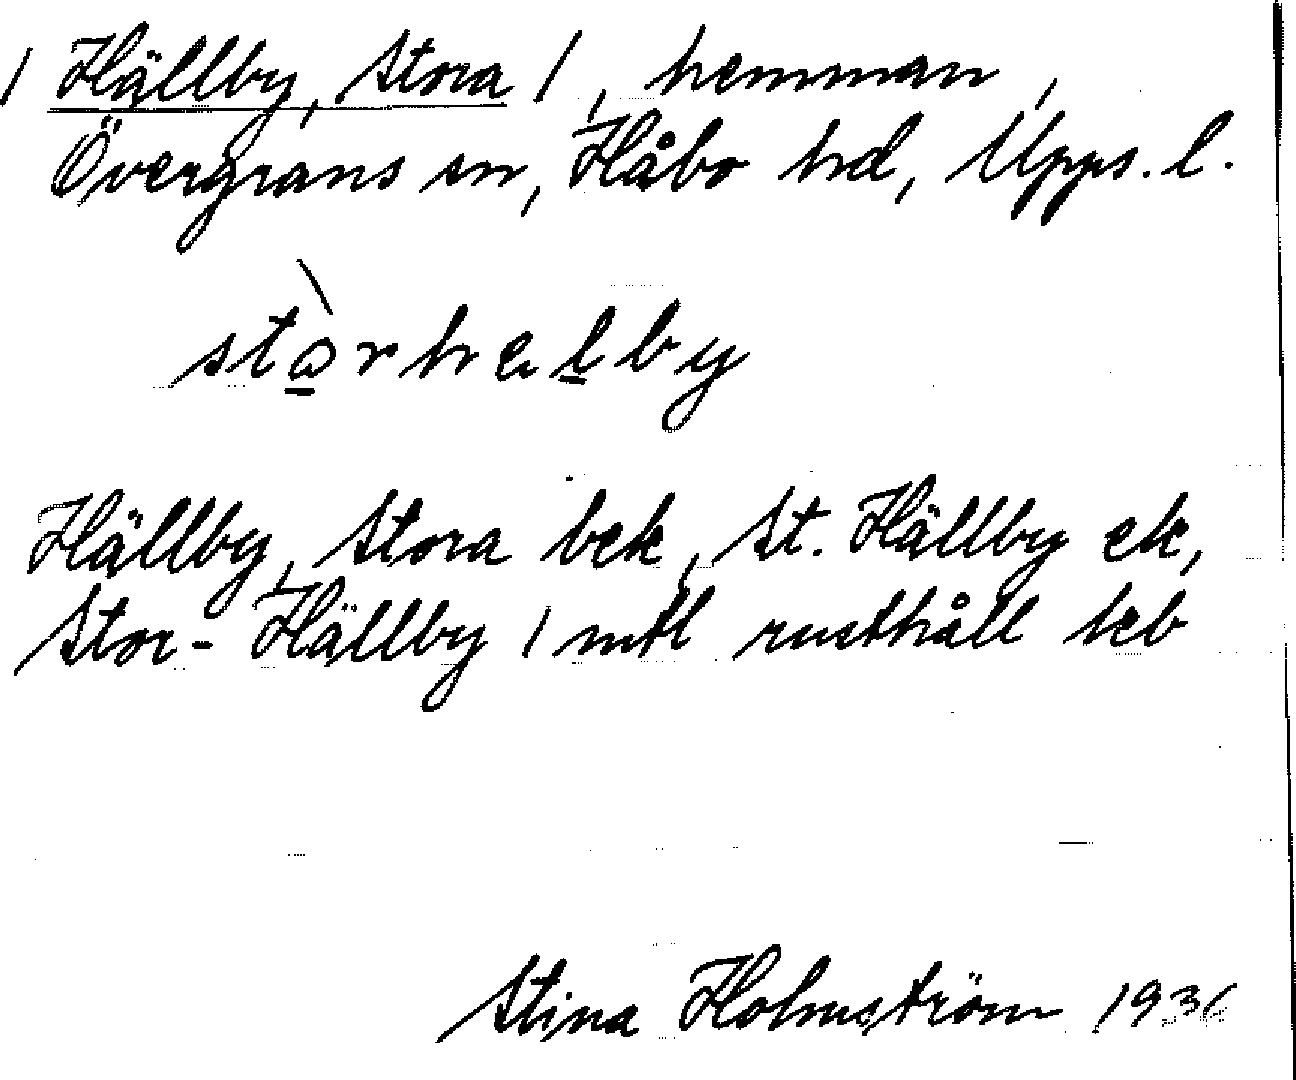 / Hällby, Stora /, hemman,
Övergrans sn, Håbo hd, Upps. l.
stòrhelby
Hällby, Stora bek, St. Hällby ek,
Stor-Hällby 1 mtl rusthåll
Stina Holmström